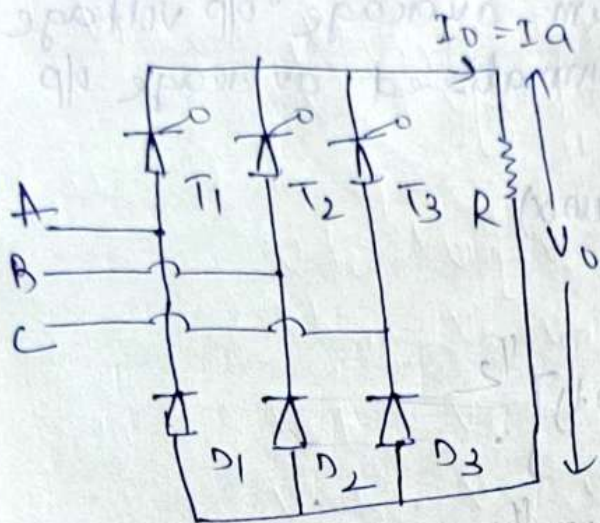 I0 = Ia
T1 T2 T3 R
A
B
V0
C
D1 D2 D3